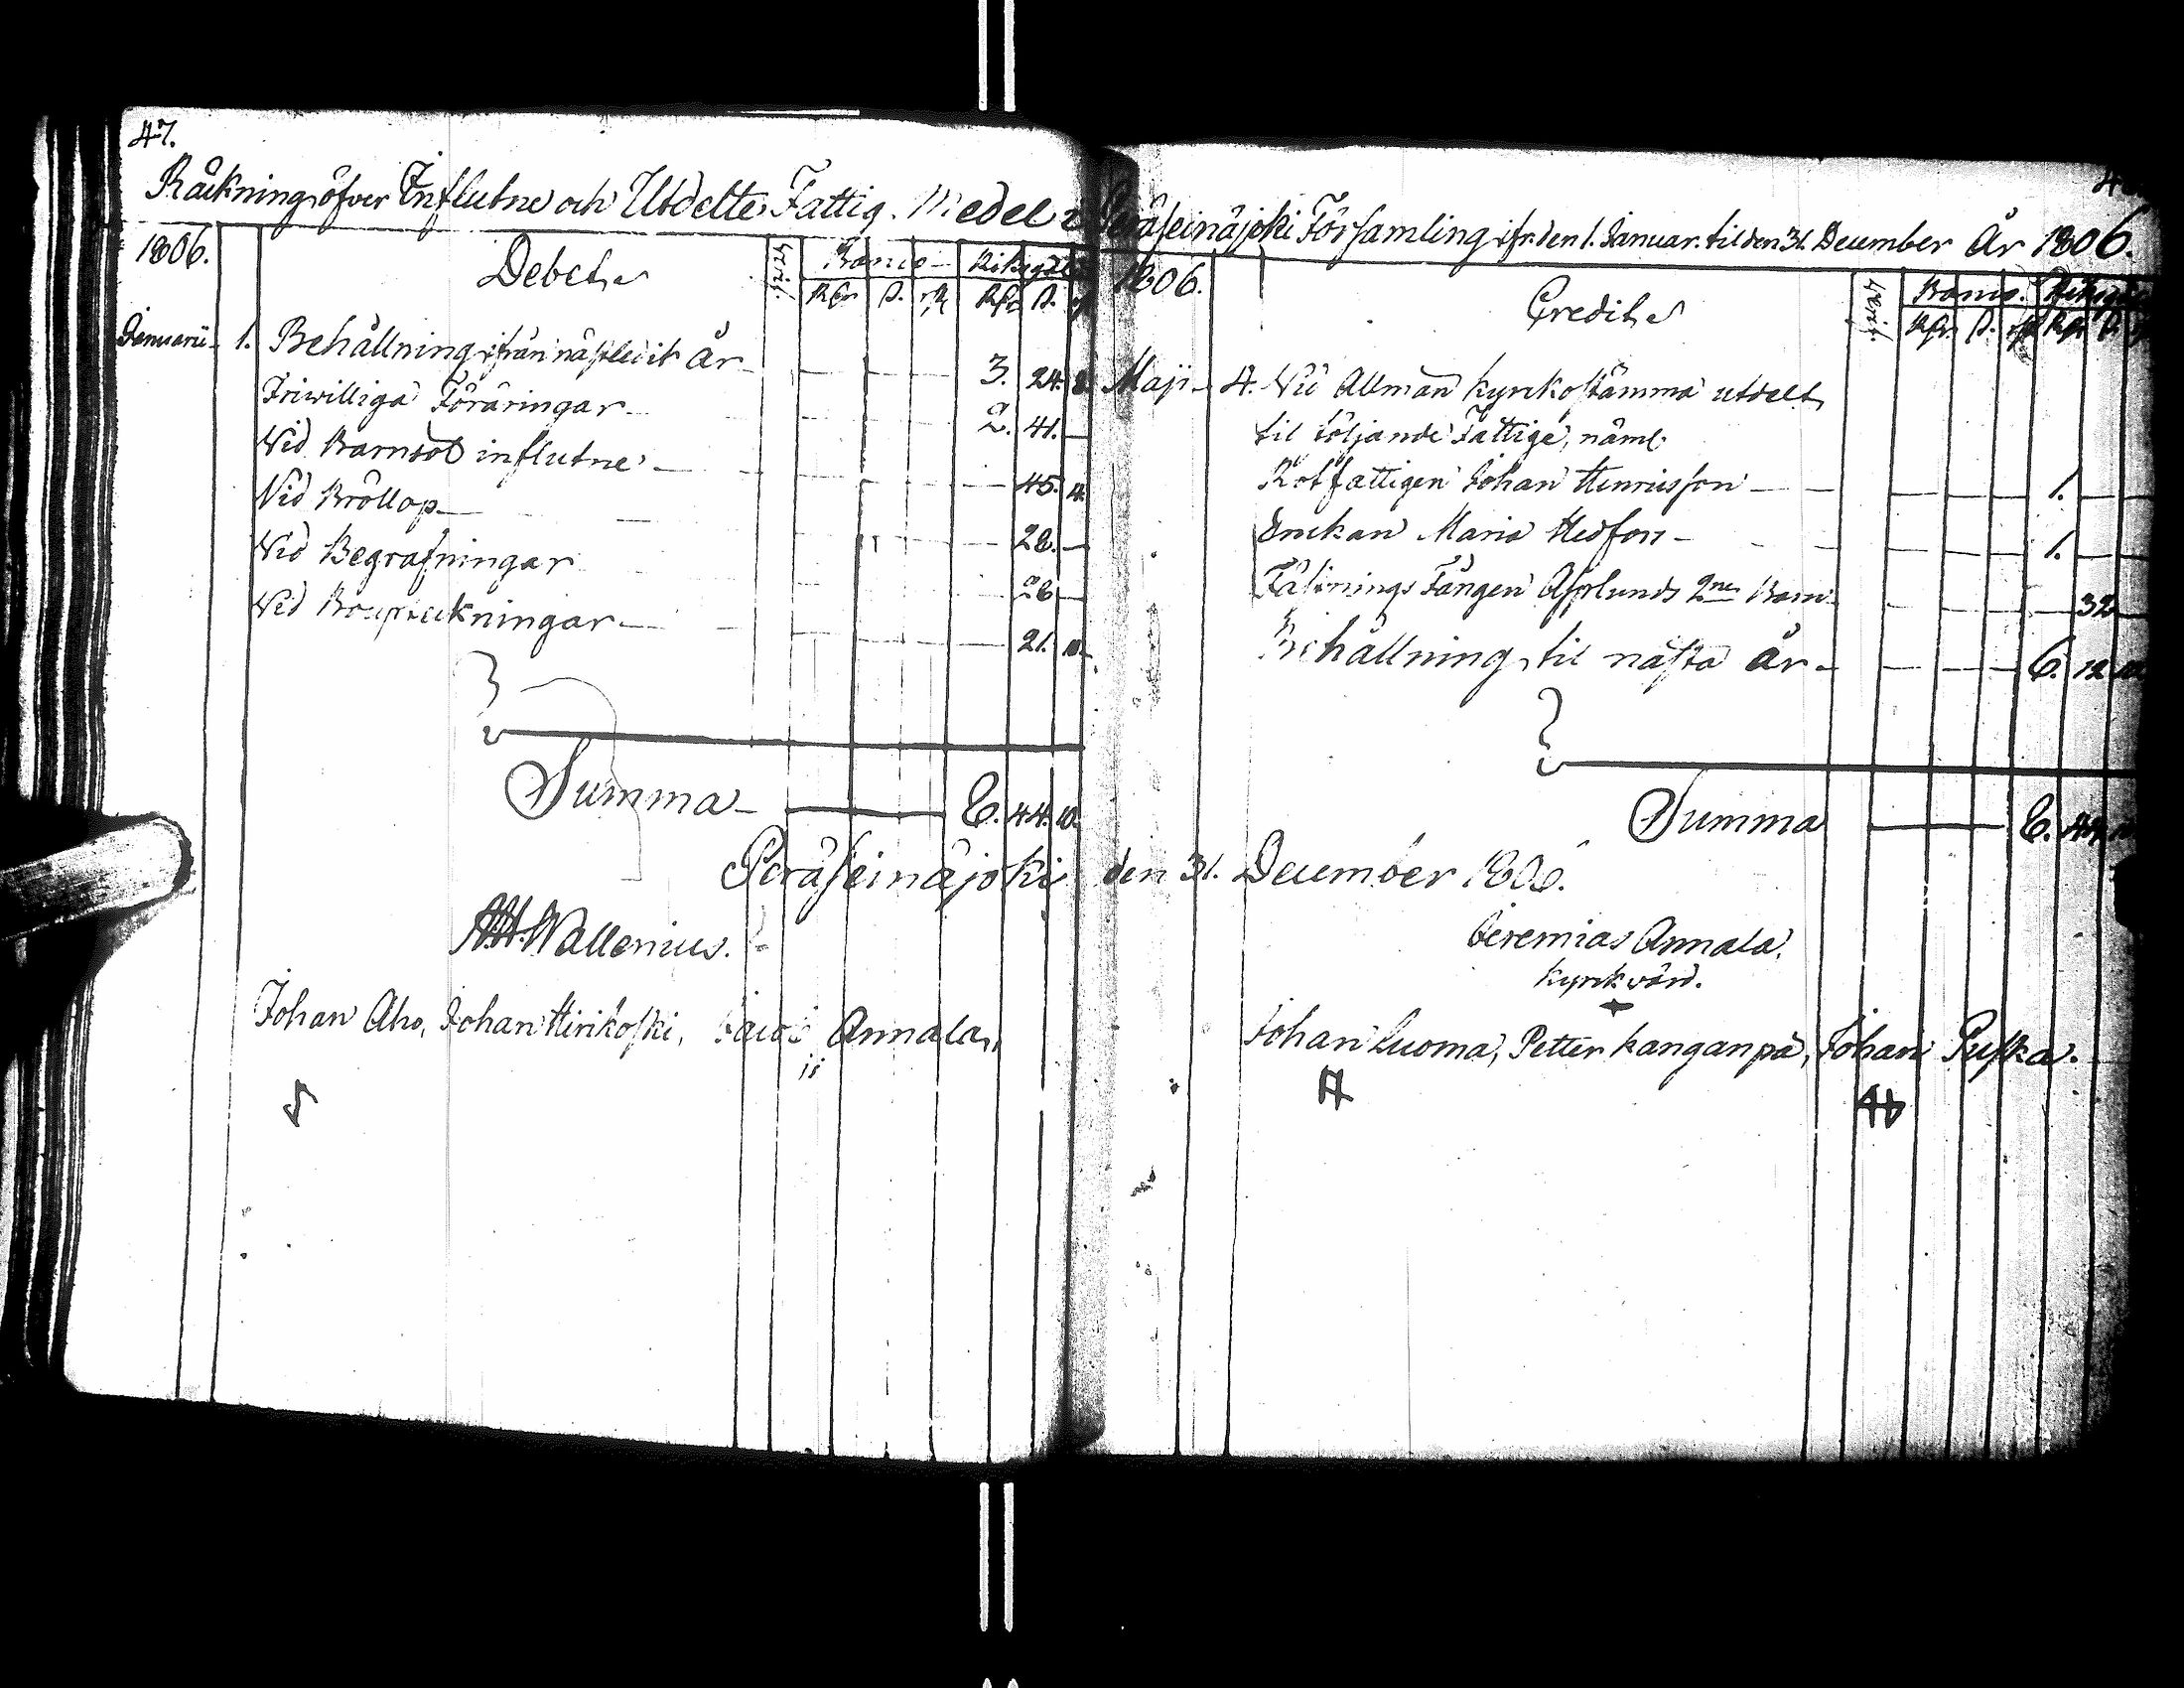 47.
Räkning öfver Influtne och Utdelte Fattig. Medel
1806. Debet Banco Riksgäld
Rdr s. rst Rdr s.
Januarii 1. Behållning ifrån nästledit År 3. 24. 8.
Friwilliga Föräringar 2. 41.
Vid Barndop influtne 45. 4.
Vid Bröllop 28.
Vid Begrafningar 28
Vid Bouptekningar 21. 10.
Summa 8. 44. 10.
Peräseinäjoki
Wallenius.
Johan Aho, Johan Hirikoski, Jacob Annala,
Peräseinäjoki Församling ifr. den 1. Januar. til den 31. December År 1806.
1806. Credit Banco. Riksgäld
Rdr. s. rst Rdr s.
Maji 4. Vid Allmän Kyrkostämma utdelt
til följande Fattige, näml.
Rotfattigen Johan Henricsson 1.
Enkan Maria Hedfors 1.
Fästnings Fången Asplunds 2ne Barn 32
Behållning til nästa År 6. 12
Summa 8. 44.
den 31. December 1806.
Jeremias Annala.
Kyrkvärd.
Johan Luoma, Petter Kanganpä, Johan Puska.